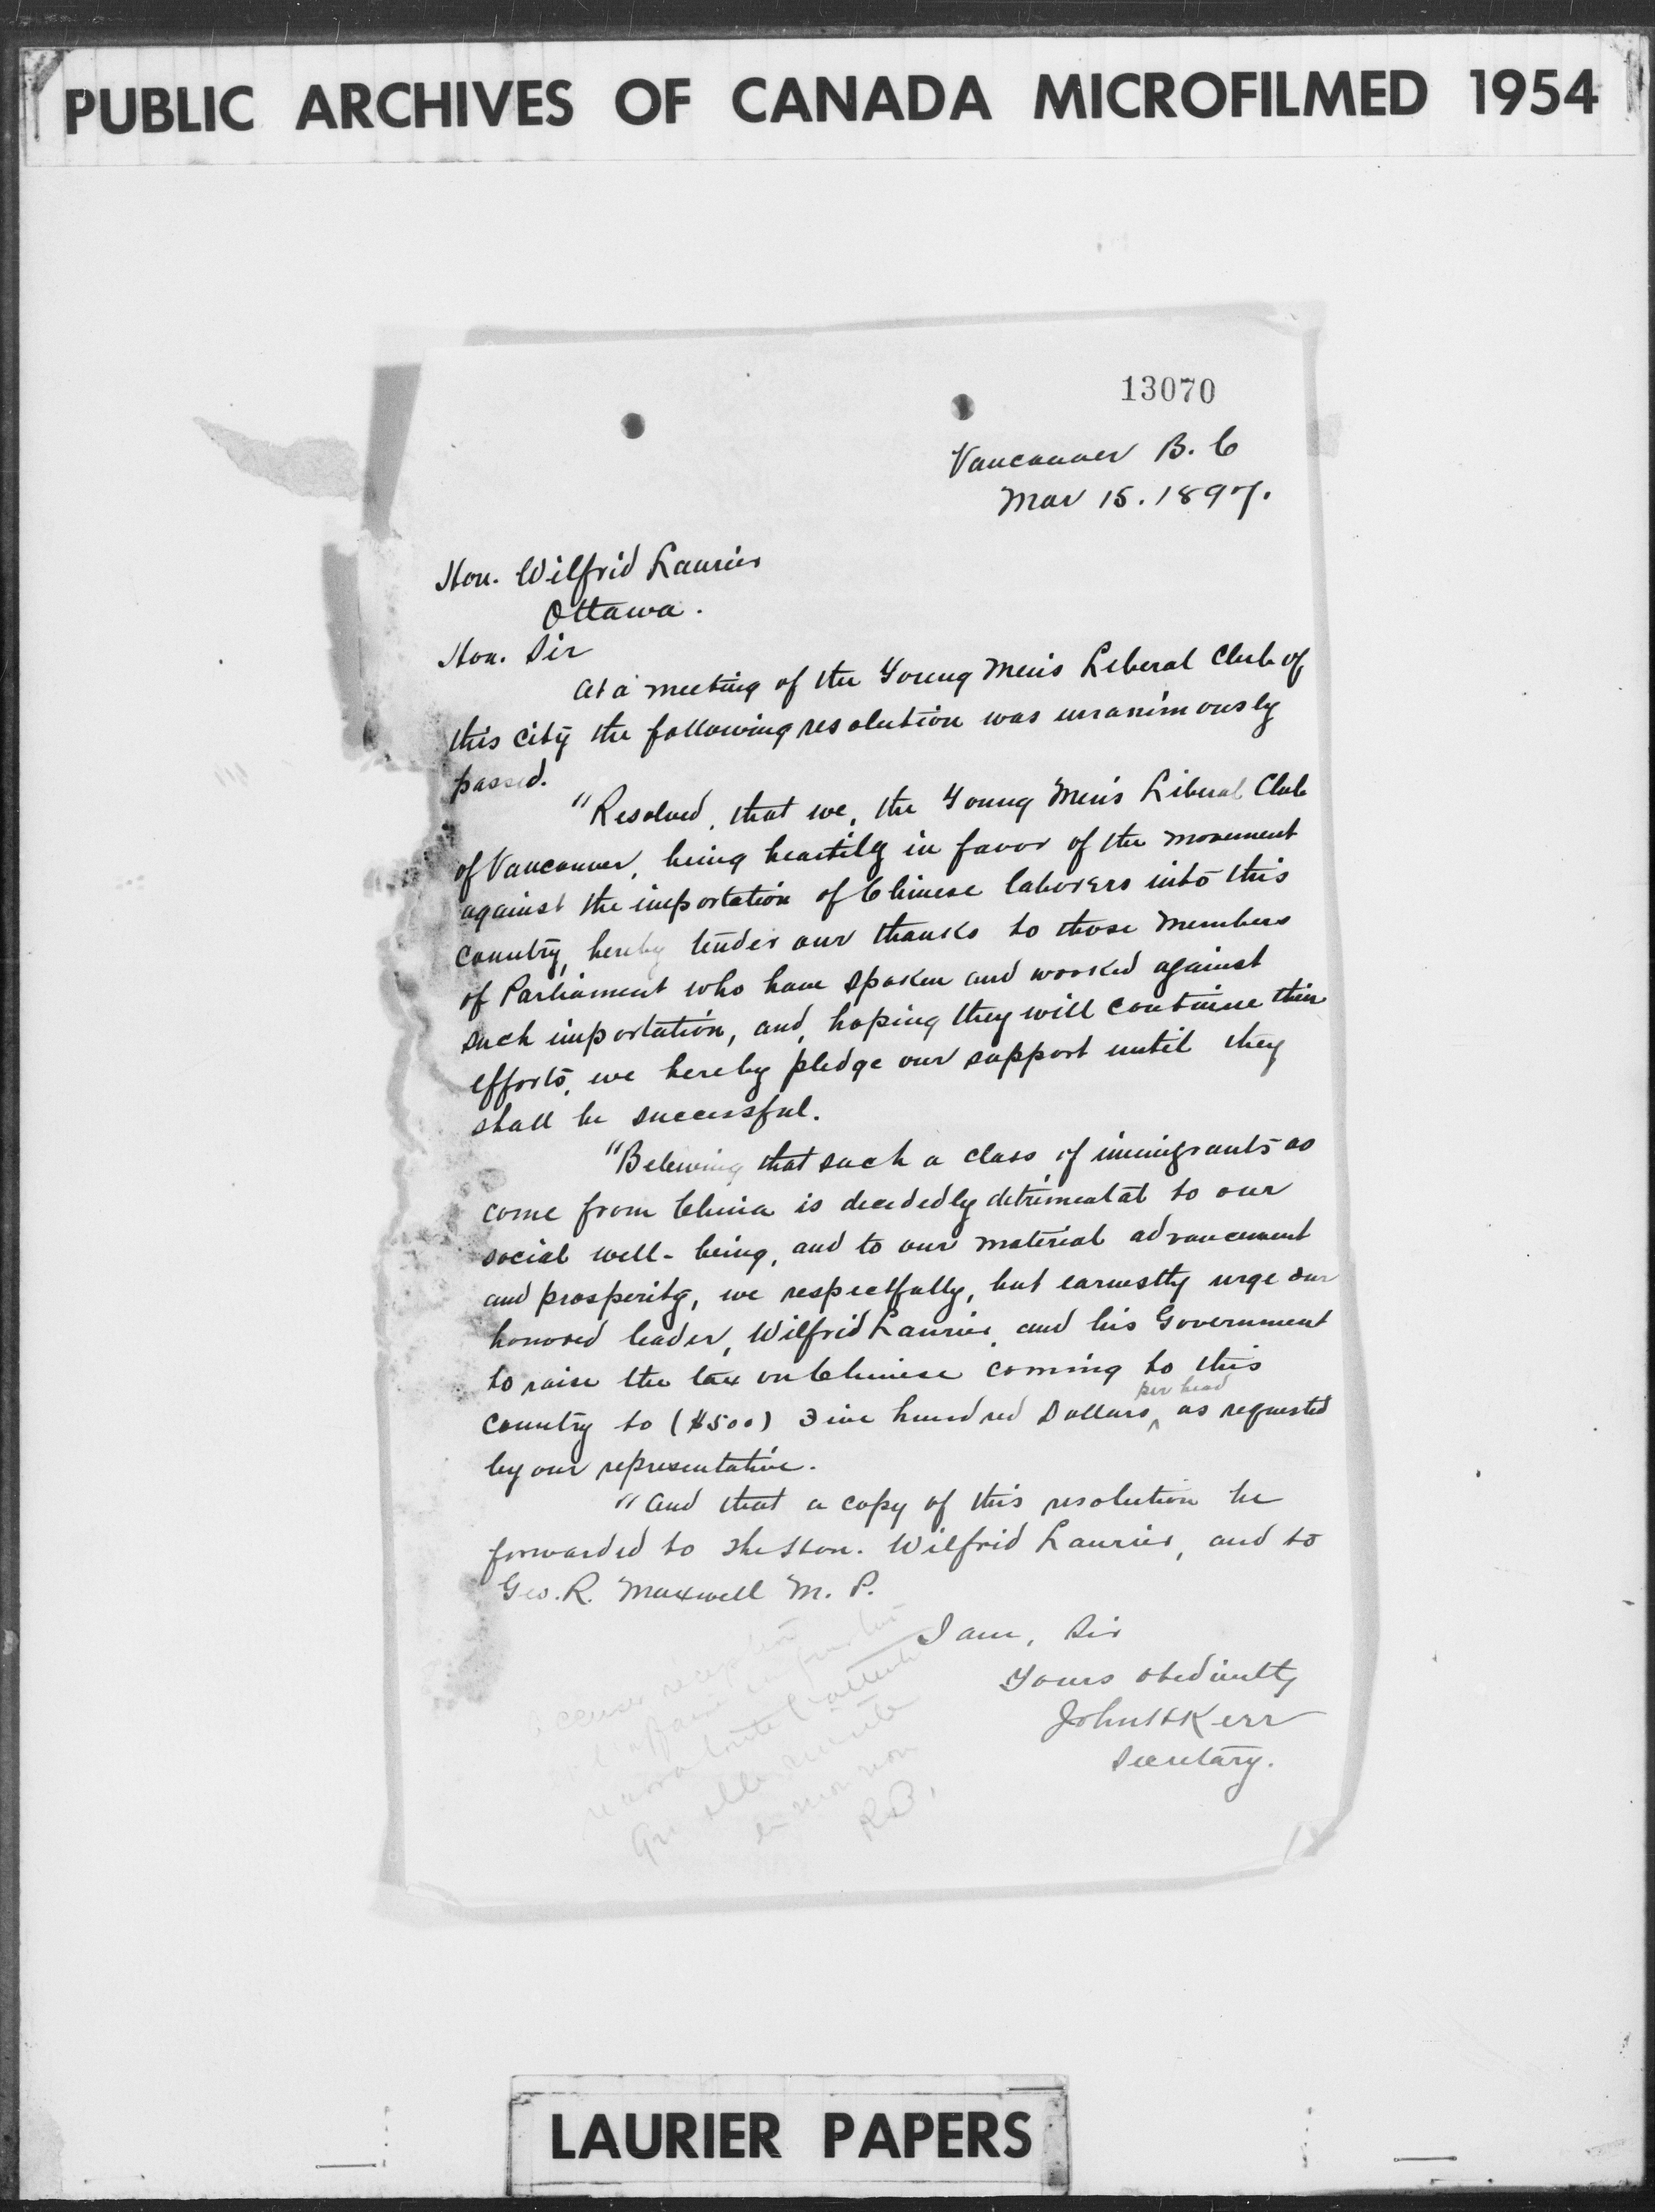 PUBLIC ARCHIVES OF CANADA MICROFILMED 1954
13070
Vancouver B. C
Mar 15. 1897.
Hon. Wilfrid Laurier
Ottawa.
Hon. Sir
At a meeting of the Young Men's Liberal Club of
this city the following resolution was unanimously
passed.
"Resolved, that we, the Young Men's Liberal Club
of Vancouver, being heartily in favor of the movement
against the importation of Chinese laborers into this
country, hereby tender our thanks to those members
of Parliament who have spoken and worked against
such importation, and, hoping they will continue their
efforts, we hereby pledge our support until they
shall be successful.
"Beleiving that such a class of immigrants as
come from China is decidedly detrimental to our
social well-being, and to our material advancement
and prosperity, we respectfully, but earnestly urge our
honored leader, Wilfrid Laurier, and his Government
to raise the tax on Chinese coming to this
country to ($500) Five hundred Dollars per head, as requested
by our representative.
"And that a copy of this resolution be
forwarded to The Hon. Wilfrid Laurier, and to
Geo. R. Maxwell M. P.
I am, Sir
Yours obediently
John H Kerr
Secretary.
LAURIER PAPERS